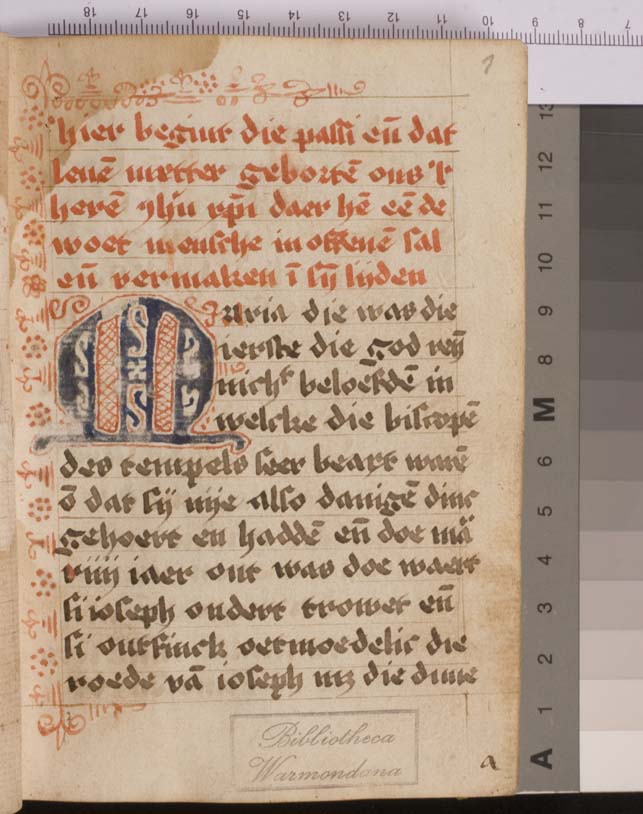 1
hier begint die passi eñ dat
leuē metter geboortē ons
herē ihū xpī daer hē eē de
woet mensche in offenē sal
eñ vermaken ī sij lijden
Maria die was die
ierste die god reij
nich beloefdē in
welcke die biscopē
des tempels seer beart warē
ō dat sij nije also danigē dinc
gehoert en haddē eñ doe mā
xiiij iaer out was doe waert
si ioseph ondert trowet eñ
si ontfinck oetmoedelic die
roede vā ioseph mz die dune
Bibliotheca
Warmondana
a